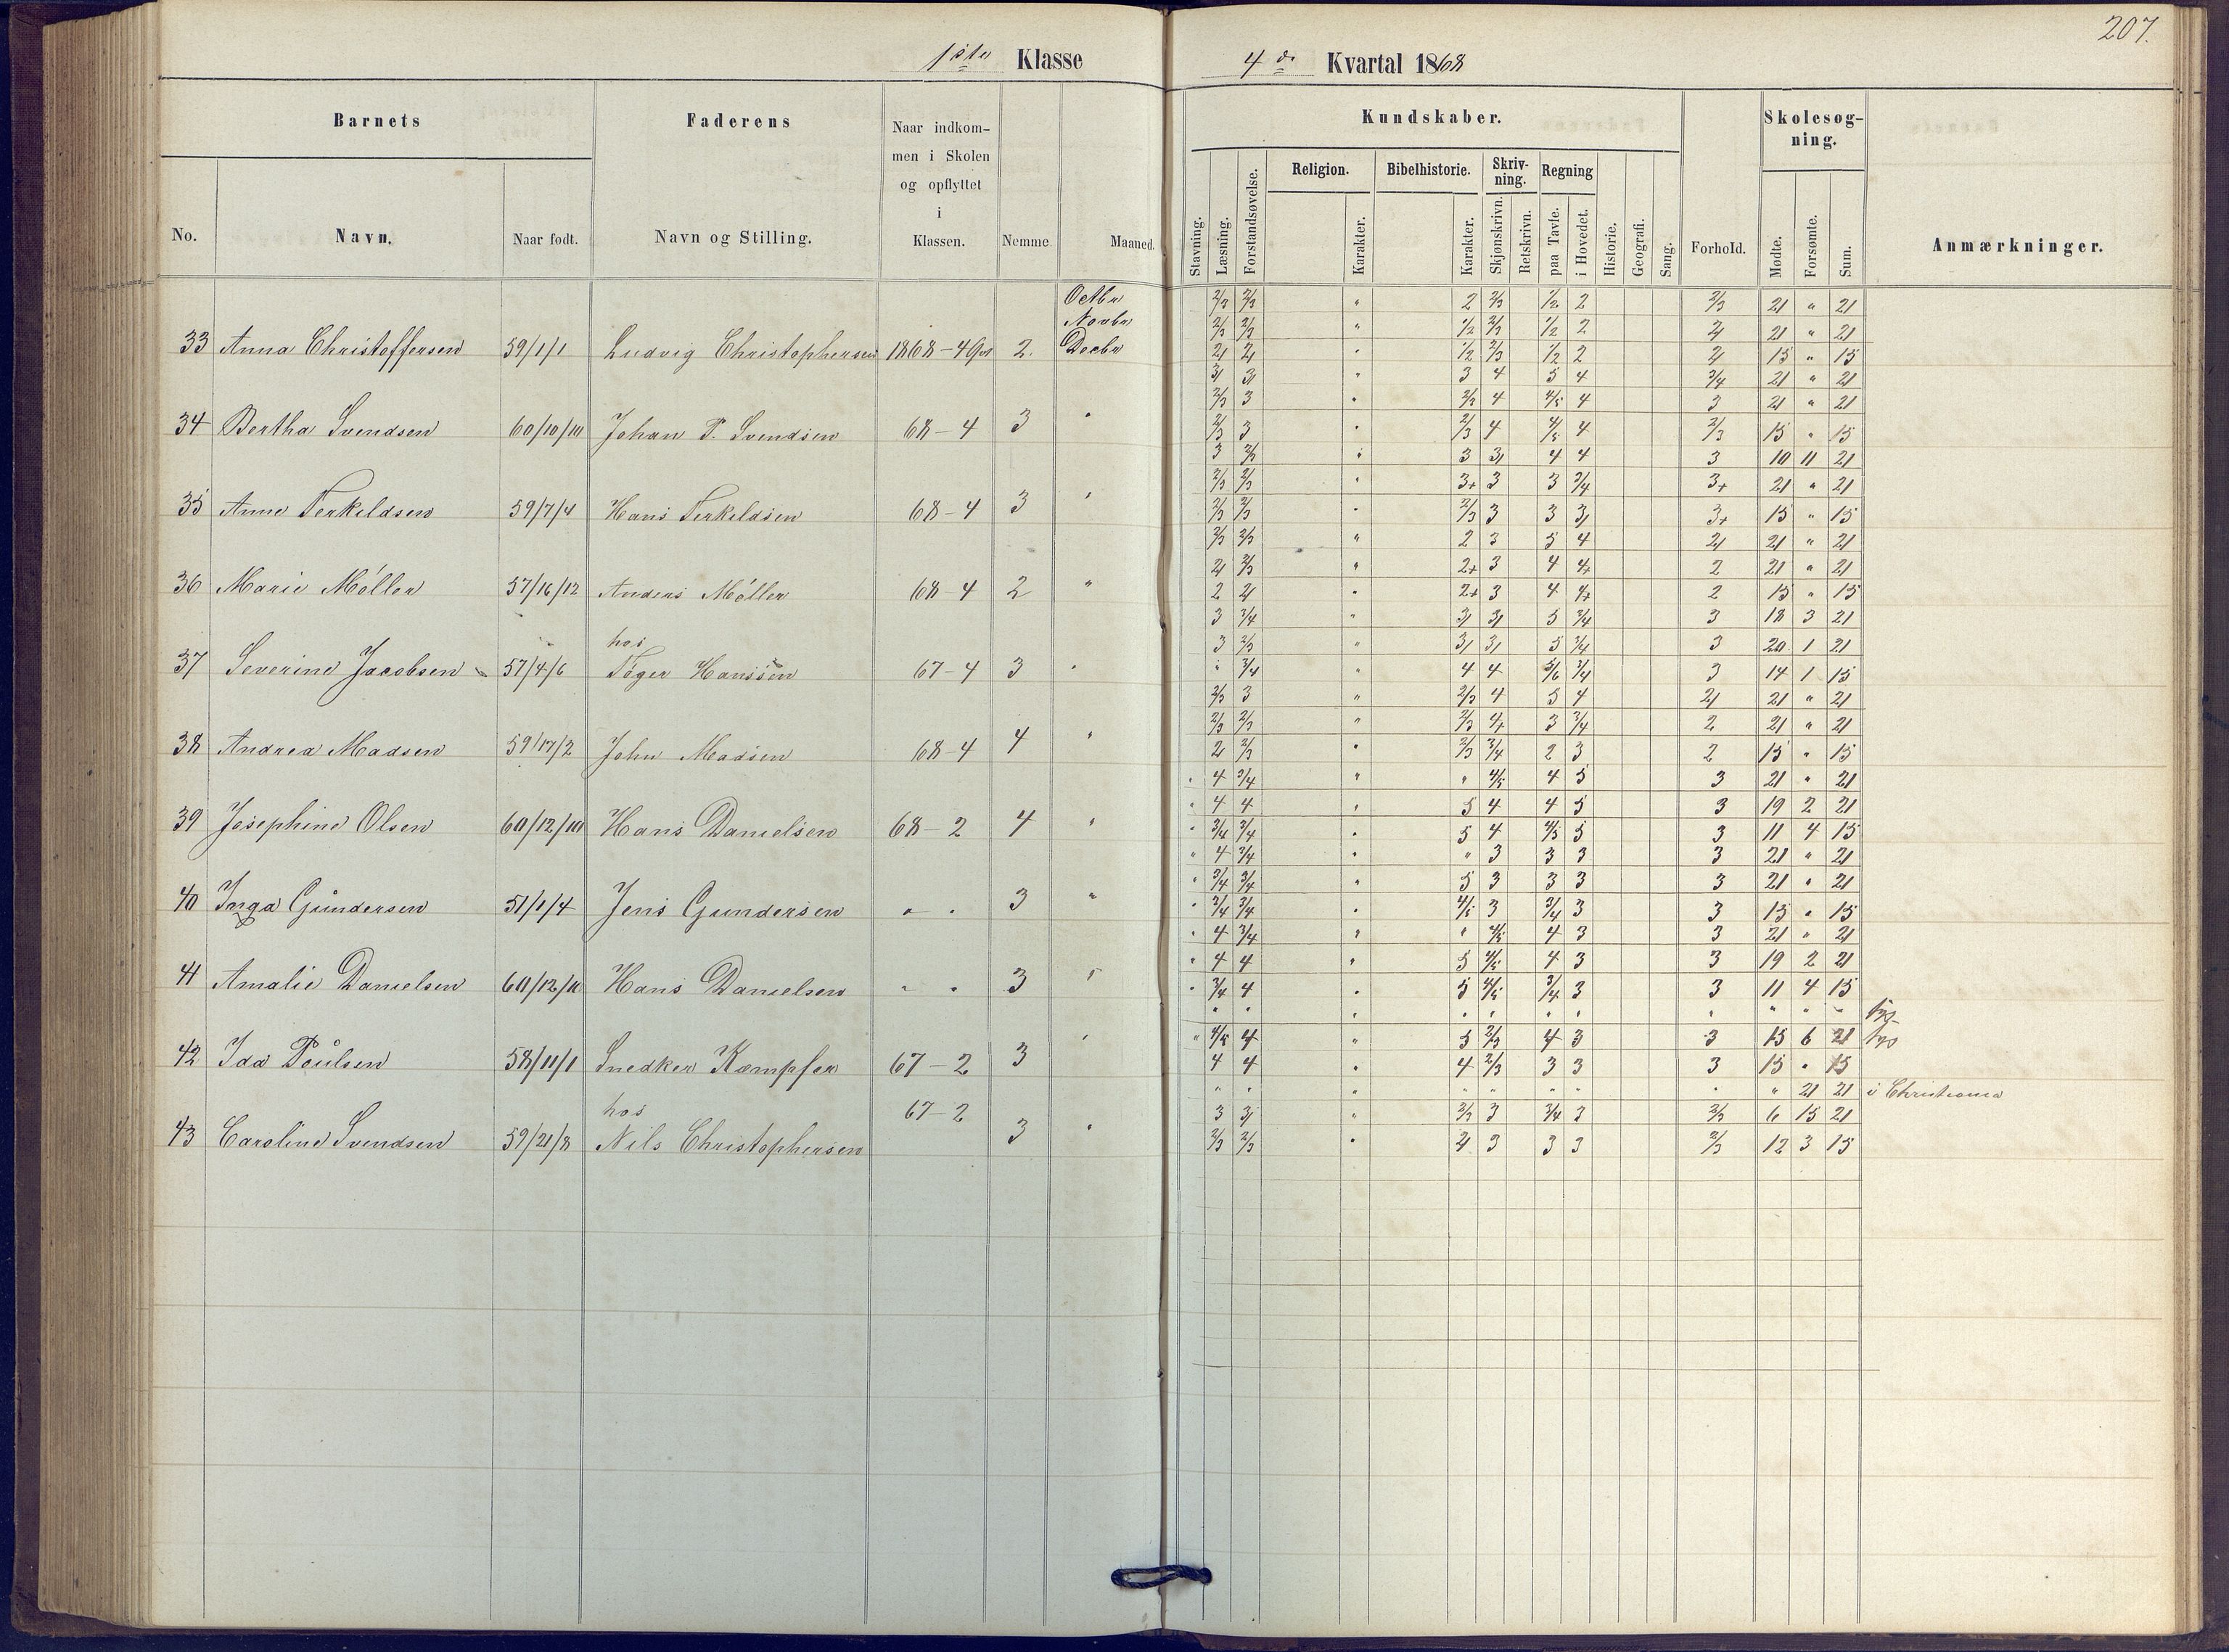 207.
1ste Klasse
4de Kvartal 1868
Barnets
Faderens
Naar indkom-
men i Skolen
og opflyttet
i
Klassen.
No.
Navn.
Naar født.
Navn og Stilling.
Nemme.
Maaned.
Kundskaber.
Stavning.
Læsning.
Forstandsøvelse.
Religion.
Karakter.
Bibelhistorie.
Karakter.
Skriv-
ning.
Skjønskrivn.
Retskrivn.
Regning
paa Tavle.
i Hovedet.
Historie.
Geografi.
Sang.
Forhold.
Skolesøg-
ning.
Mødte.
Forsømte.
Sum.
Anmærkninger.
Octbr
Novbr
33 Anna Christoffersen 59/1/1 Ludvig Christophersen 1868-4 2. Decbr
34 Bertha Svendsen 60/10/10 Johan P. Svendsen 68-4 3 "
35 Anne Terkildsen 59/7/4 Hans Terkildsen 68-4 3 "
36 Marie Møller 57/16/12 Anders Møller 68-4 2 "
hos
37 Severine Jacobsen 57/4/6 Tøger Hanssen 67-4 3 "
38 Andrea Madsen 59/17/2 John Madsen 68-4 4 "
39 Josephine Olsen 60/12/10 Hans Danielsen 68-2 4 "
40 Inga Gundersen 51/1/4 Jens Gundersen " " 3 "
41 Amalie Danielsen 60/12/10 Hans Danielsen " " 3 "
42 Ida Poulsen 58/11/1 Snedker Kæmpfer 67-2 3 "
hos 67-2
43 Caroline Svendsen 59/21/8 Nils Christophersen 3 "
2/3 2/3 " 2 2/3 1/2 2 2/3 21 " 21
2/3 2/3 " 1/2 2/3 1/2 2 2/ 21 " 21
2/ 2/ " 1/2 2/3 1/2 2 2/ 15 " 15
3/ 3/ " 3 4 5 4 3/4 21 " 21
2/3 3 " 2/3 4 4/5 4 3 21 " 21
2/3 3 " 2/3 4 4/5 4 2/3 15 " 15
3 2/3 " 3 3/ 4 4 3 10 11 21
2/3 2/3 " 3+ 3 3 3/4 3+ 21 " 21
2/3 2/3 " 2/3 3 3 3/ 3+ 15 " 15
2/3 2/3 " 2 3 5 4 2/ 21 " 21
2/ 2/3 " 2+ 3 4 4+ 2 21 " 21
2 2/ " 2+ 3 4 4+ 2 15 " 15
3 3/4 " 3/ 3/ 5 3/4 3 18 3 21
3 2/3 " 3/ 3/ 5 3/4 3 20 1 21
" 3/4 " 4 4 5/6 3/4 3 14 1 15
2/3 3 " 2/3 4 5 4 2/ 21 " 21
2/3 2/3 " 2/3 4+ 3 3/4 2 21 " 21
2 2/3 " 2/3 3/4 2 3 2 15 " 15
" 4 3/4 " " 4/5 4 5 3 21 " 21
" 4 4 " 5 4 4 5 3 19 2 21
" 3/4 3/4 " 5 4 4/5 5 3 11 4 15
" 4 3/4 " " 3 3 3 3 21 " 21
" 3/4 3/4 " 5 3 3 3 3 21 " 21
" 3/4 3/4 " 4/5 3 3/4 3 3 15 " 15
" 4 3/4 " " 4/5 4 3 3 21 " 21
" 4 4 " 5 4/5 4 3 3 19 2 21
" 3/4 4 " 5 4/5 3/4 3 3 11 4 15
" " " " " " " " " " "
" 4/5 4 " 5 2/3 4 3 3 15 6 21
4 4 " 4 2/3 3 3 3 15 " 15
" " " " " " " " " 21 21 i Christiania
3 3/ " 2/3 3 3/4 3 2/3 6 15 21
2/3 2/3 " 2/ 3 3 3 2/3 12 3 15